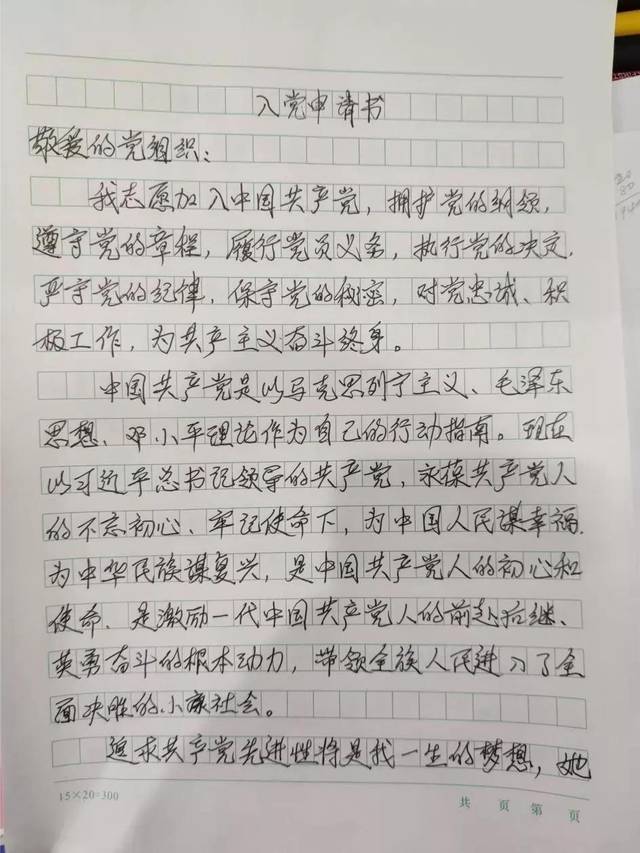 入党申请书
敬爱的党组织：
我志愿加入中国共产党，拥护党的纲领，
遵守党的章程，履行党员义务，执行党的决定，
严守党的纪律，保守党的秘密，对党忠诚、积
极工作，为共产主义奋斗终身。
中国共产党是以马克思列宁主义、毛泽东
思想、邓小平理论作为自己的行动指南。现在
以习近平总书记领导的共产党，永葆共产党人
的不忘初心、牢记使命下，为中国人民谋幸福，
为中华民族谋复兴，是中国共产党人的初心和
使命，是激励一代中国共产党人的前赴后继、
英勇奋斗的根本动力，带领全族人民进入了全
面决胜的小康社会。
追求共产党先进性将是我一生的梦想，她
15×20=300
共 页 第 页